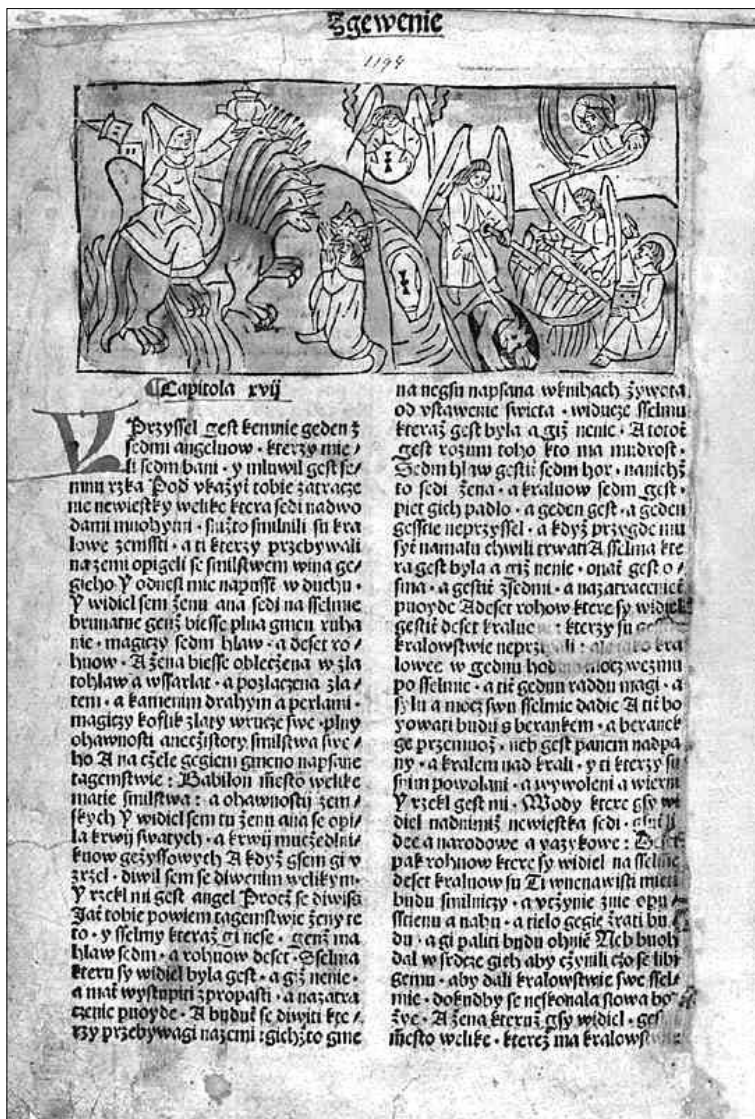 Zgewenie
1194
Capitola xvij
Przyssel gest kemnie geden z
sedmi angeluow · kterzy mie/
li sedm bani · y mluwil gest se/
mnu rzka Pod vkažyt tobie zatracze
nie newiestky welike ktera sedi nadwo
dami mnohymi · snižto smilnili su kra
lowe zemssti · a ti kterzy przebywali
na zemi opigeli se smilstwem wina ge/
gieho Y odnesl mie napusst w duchu ·
Y widiel sem ženu ana sedi na sselmie
brunatne genž biesse plna gmen ruha
nie · magiczy sedm hlaw · a deset ro/
huow · A žena biesse obleczena w zla
tohlaw a wssarlat · a pozlaczena zla/
tem · a kamenim drahym a perlami ·
magiczy koflik zlaty wrucze swe · plny
ohawnosti aneczistoty smilstwa swe/
ho A na czele gegiem gmeno napsane
tagemstwie : Babilon miesto welike
matie smilstwa : a ohawnostij zem/
skych Y widiel sem tu ženu ana se opi/
la krwij swatych · a krwij muczedlni/
kuow gežyssowych A když gsem gi v
zrzel · diwil sem se diwenim welikym ·
Y rzekl mi gest angel Procž se diwiss
Jat tobie powiem tagemstwie ženy te
to · y sselmy kteraž gi nese · genž ma
hlaw sedm · a rohuow deset · Sselma
kteru sy widiel byla gest · a giž nenie ·
a mat wystupiti z propasti · a nazatra
czenie puoyde · A budut se diwiti kte/
rzy przebywagi nazemi : gichžto gme
na negsu napsana wknihach žywota
od vstawenie swieta · widucze sselmu
kteraž gest byla a giž nenie · A totot
gest rozum toho kto ma mudrost ·
Sedm hlaw gestit sedm hor · nanichž
to sedi žena · a kraluow sedm gest ·
piet gich padlo · a geden gest · a geden
gesscie neprzyssel · a když przygde mu
syt namalu chwili trwati A sselma kte
ra gest byla a giž nenie · onat gest o/
sma · a gestit zsedmi · a nazatracenie
puoyde A deset rohow ktere sy widiel
gestit deset kraluow : kterzy su
kralowstwie neprzyali : kra
lowee w gednu hod mocz wezmu
po sselmie · a tit gednu raddu magi · a
sylu a mocz swu sselmie dadie A tit bo
yowati budu s berankem · a beranek
ge przemuož · neb gest panem nadpa
ny · a kralem nad krali · y ti kterzy su
s nim powolani · a wywoleni a wierni
Y rzekl gest mi · Wody ktere gsy wi
diel nadnimiž newiestka sedi · li
dee a narodowe a yazykowe : Deset
pak rohuow ktere sy widiel na sselmie
deset kraluow su Ti wnenawisti mieti
budu smilniczy · a vczynie žnie opu/
sstienu a nahu · a tielo gegie žrati bu
du · a gi paliti budu ohnie Neb buoh
dal w srdcze gich aby czynili czo se libi
gemu · aby dali kralowstwie swe ssel/
mie · dokudby se neskonala slowa bo
žye · A žena kteruž gsy widiel · gest
miesto welike · kterež ma kralowstwie